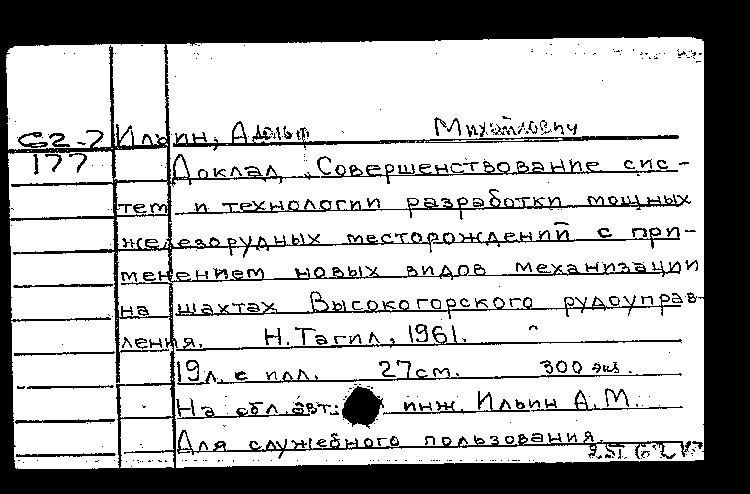 62-7 Ильин, Адольф Михайлович
177 Доклад Совершенствование сис-
тем и технологии разработки мощных
железорудных месторождений с при-
менением новых видов механизации
на шахтах Высокогорского рудоуправ-
ления. Н. Тагил, 1961.
19л. с илл. 27см. 300 экз.
На обл. авт.: инж. Ильин А.М.
Для служебного пользования.